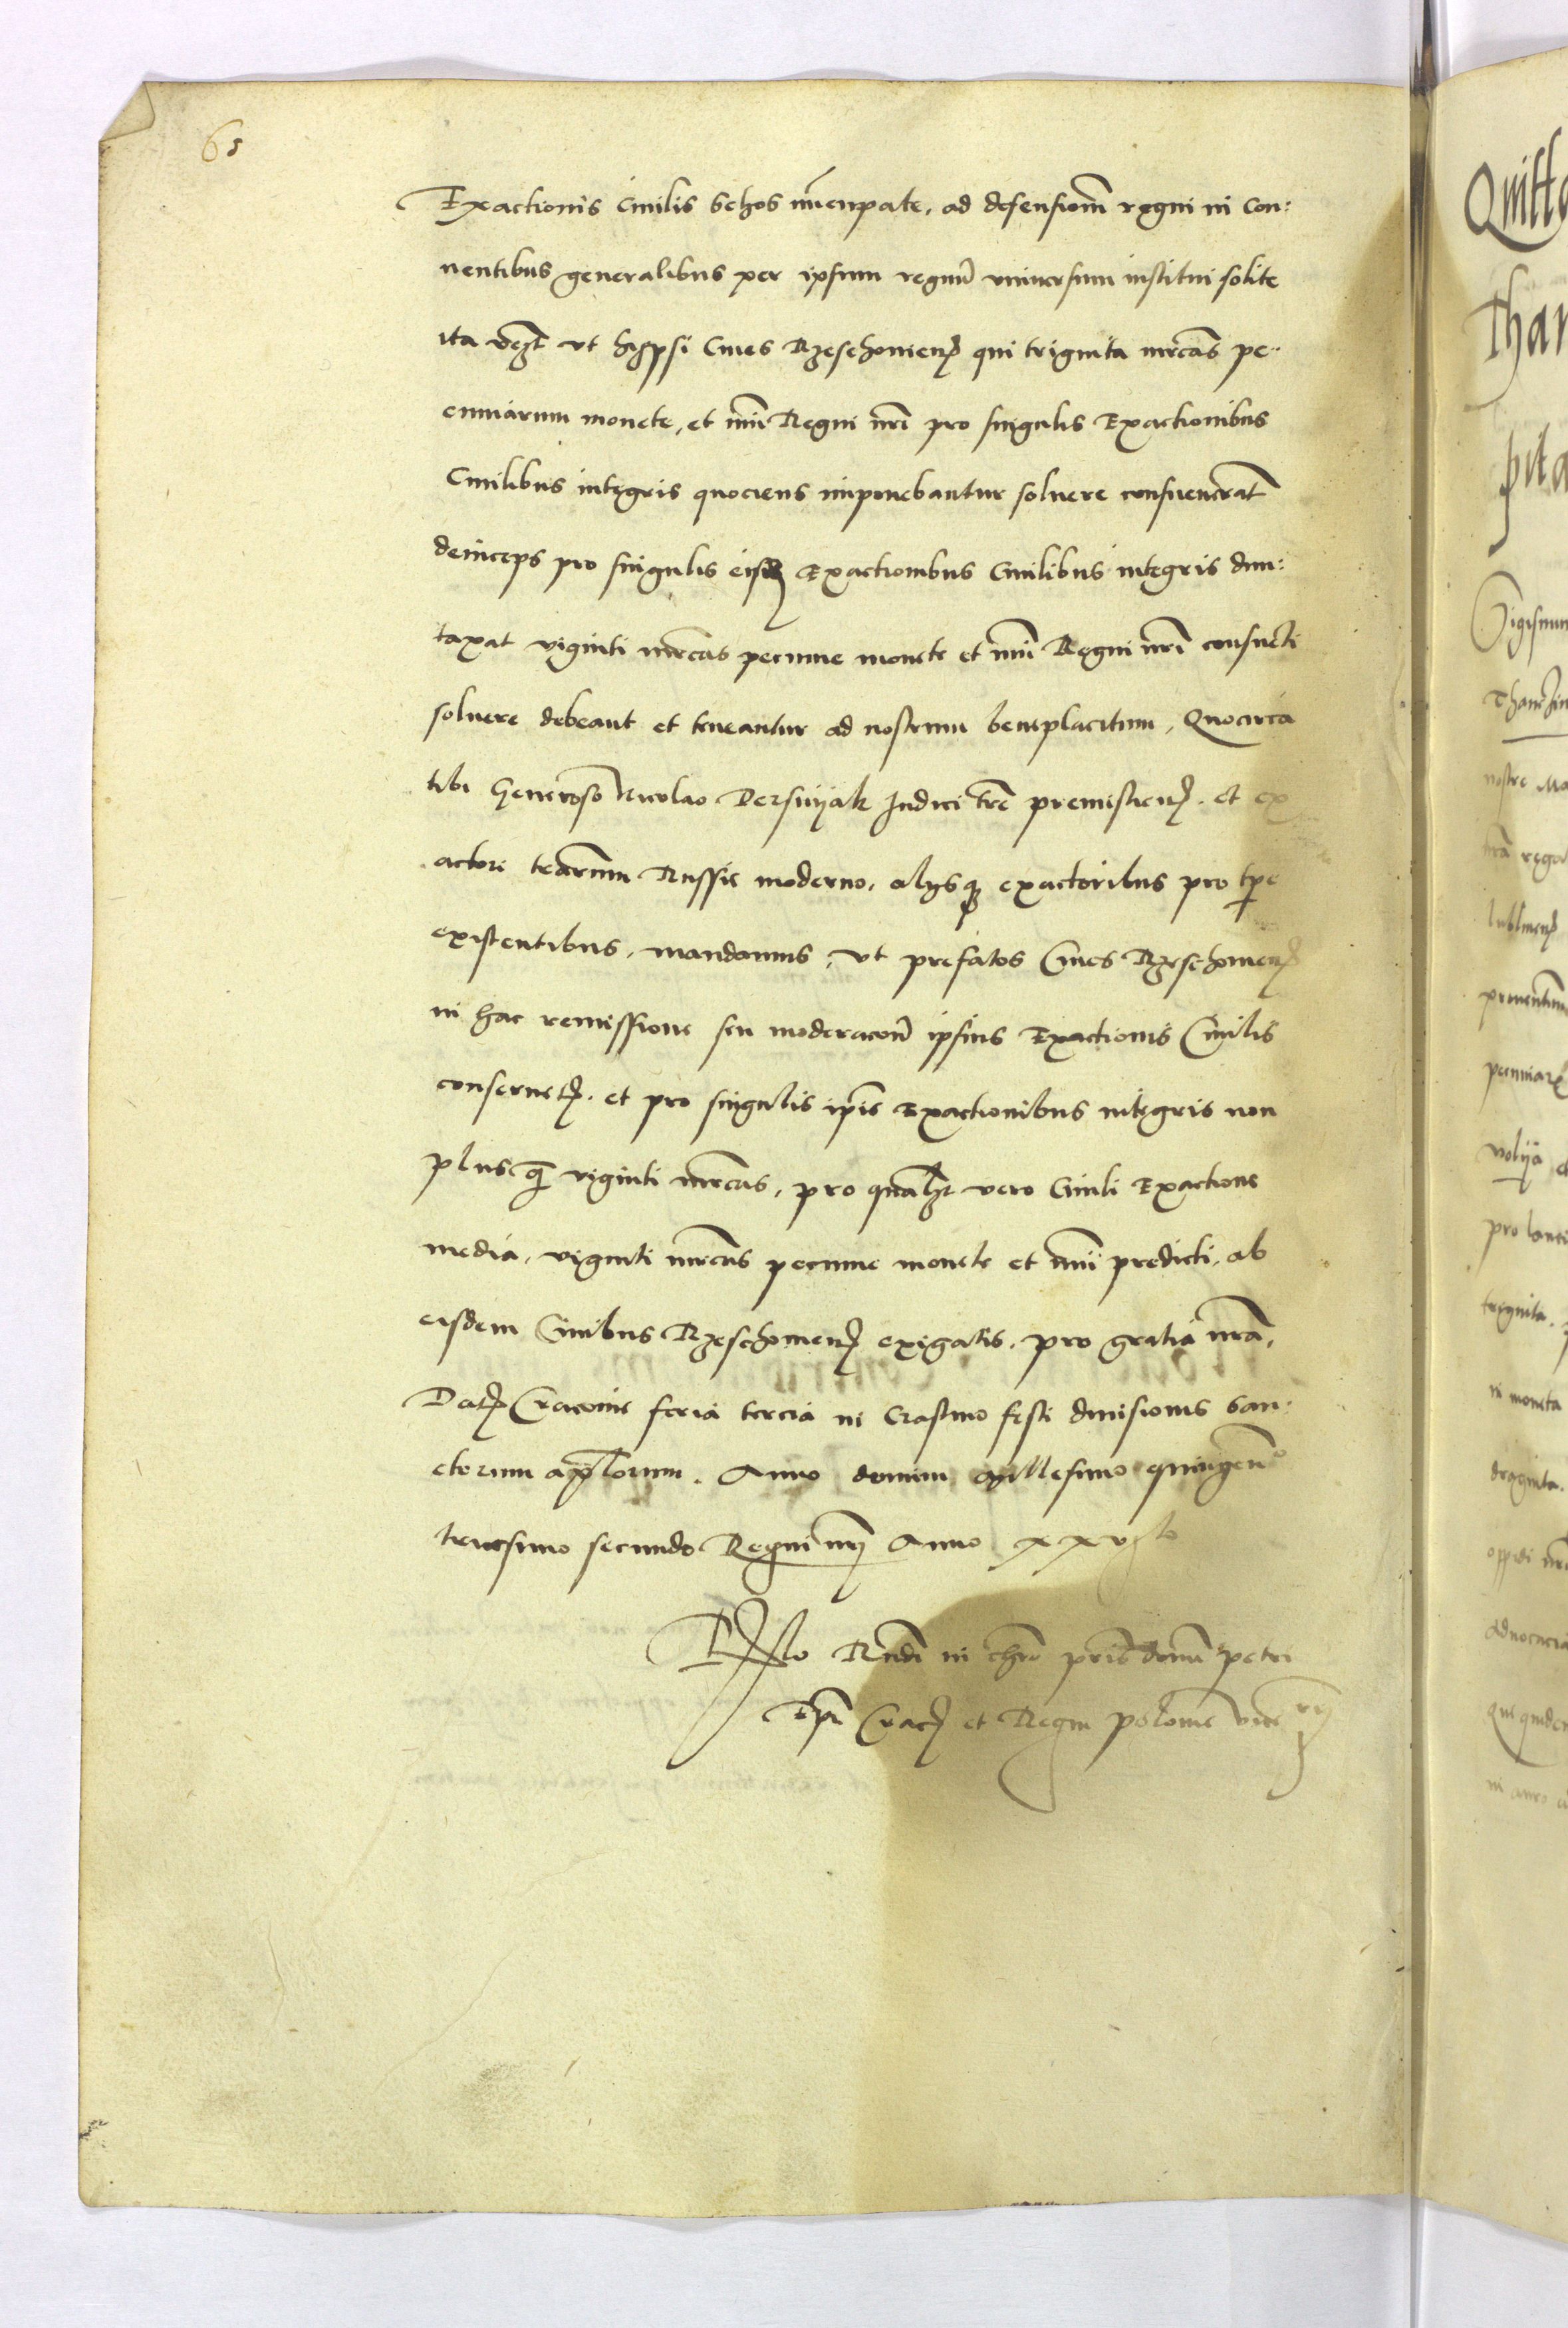 65
Exactionis Ciuilis Schos nuncupate, ad defensionem regni in Con:
uentibus generalibus per ipsum regnum vniuersum institui solite
ita videlicet ut hi ipsi Ciues Rzeschouien qui triginta marcas pe:
cuniarum monete, et numeri Regni nri pro singulis Exactionibus
Ciuilibus integris quociens imponebantur soluere consueuerat
deinceps pro singulis eisdem Exactionibus Ciuilibus integris dun:
taxat viginti marcas pecunie monete et numeri Regni nri consueti
soluere debeant et teneantur ad nostrum beneplacitum, Quocirca
tibi Generoso Nicolao Dersnijak Judici terre premislien. et ex
actori terrarum Russie moderno, alijsque exactoribus pro tpe
existentibus, mandamus, vt prefatos Ciues Rzeschouien
in hac remissione seu moderacione ipsius Exactionis Ciuilis
conseruetis. et pro singulis ipsis Exactionibus integris non
plusquam viginti marcas, pro qualibet vero Ciuili Exactione
media, viginti marcas pecunie monete et numeri predicti, ab
eisdem Ciuibus Rzeschouien exigatis. pro gratia nra,
Dat Cracouie feria tercia in Crastino festi diuisionis San:
ctorum aplorum. Anno domini Millesimo quingen
tricesimo secundo Regni nri Anno xxvjto
Relo Rndi in chro pris domini petri
Epi Crac et Regni polonie vice
Quitt
Than
pita
Sigismun
nostre Ma
lublinen
pecuniar
pro lanei
triginta
in moneta
draginta.
oppidi nri
aduocacia
que quidem
in anno